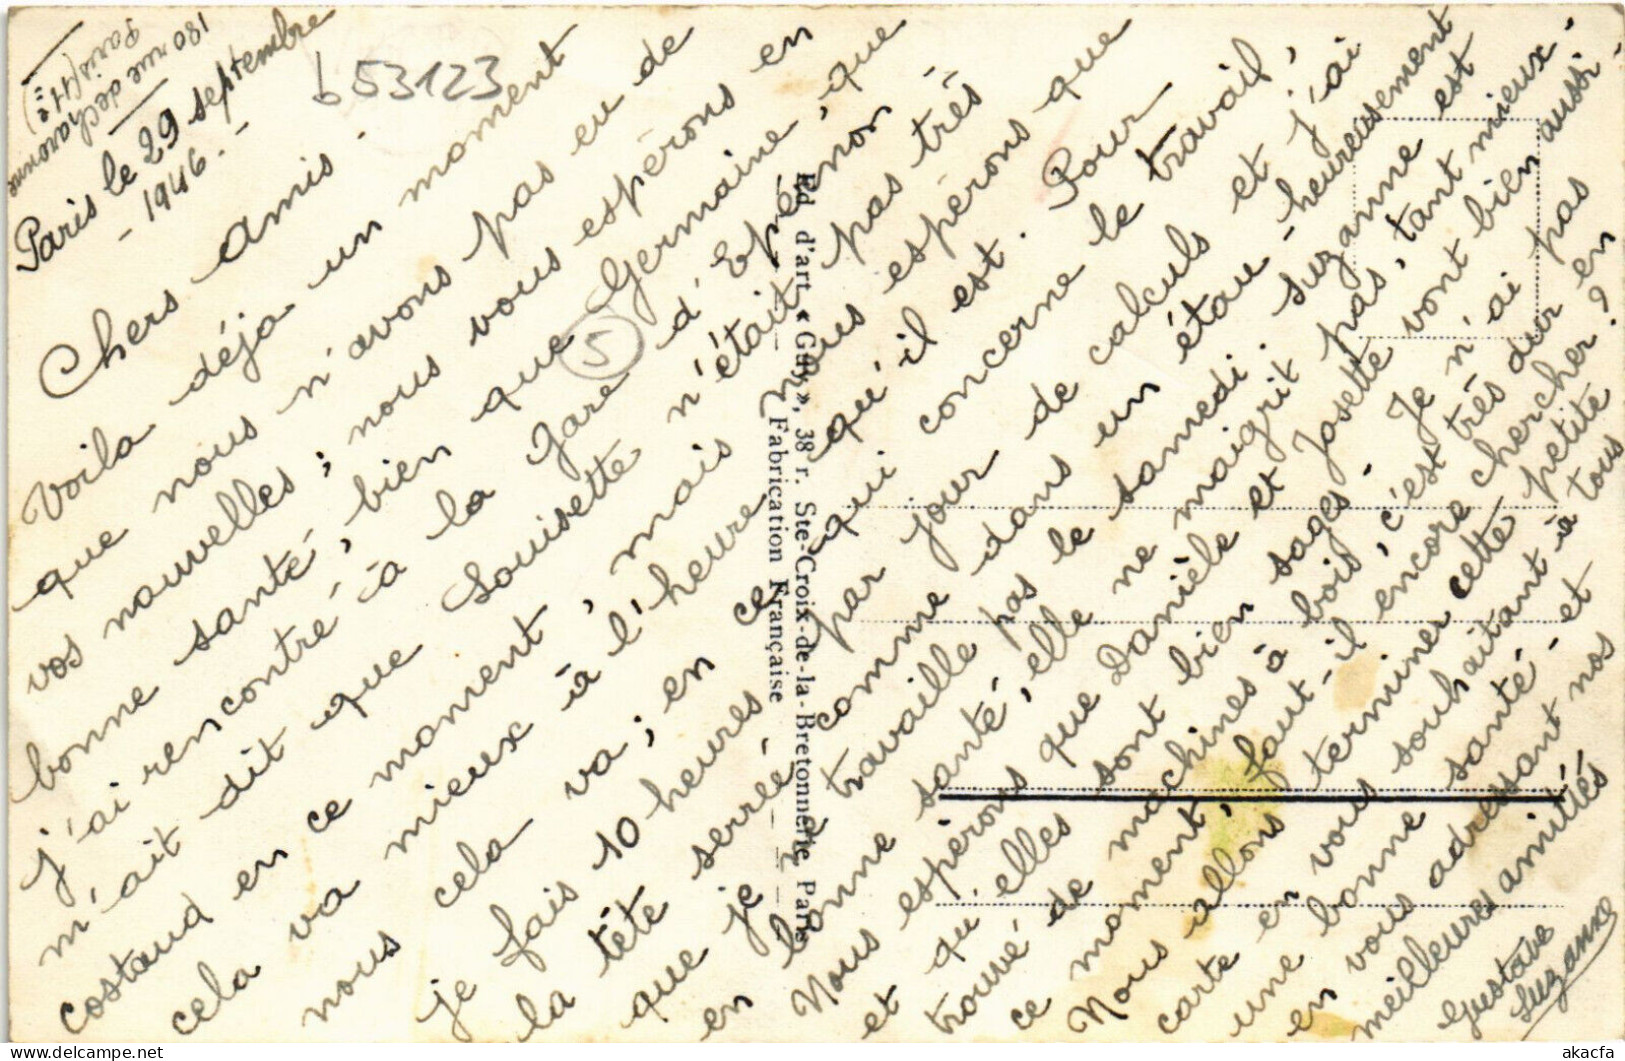 180 rue de Charonne
Paris (11ème)
Paris le 29 septembre
- 1946 . -
b53123
5
Chers amis .
Voila déja un moment
que nous n'avons pas eu de
vos nouvelles ; nous vous espérons en
bonne santé, bien que Germaine, que
j'ai rencontré à la gare d'Epernon
m'ait dit que Louisette n'était pas très
costaud en ce moment, mais nous espérons que
cela va mieux à l'heure qu'il est. Pour
nous cela va ; en ce qui concerne le travail,
je fais 10 heures par jour de calculs et j'ai
la tête serrée comme dans un étau - heureusement
que je ne travaille pas le samedi. Suzanne est
en bonne santé, elle ne maigrit pas, tant mieux -
Nous espérons que Danièle et Josette vont bien aussi -
et qu'elles sont bien sages - Je n'ai pas
trouvé de machines à bois, c'est très dur en
ce moment, faut-il encore chercher ?
Nous allons terminer cette petite
carte en vous souhaitant à tous
une bonne santé - et
en vous adressant nos
meilleures amitiés
Gustave
Suzanne
Ed. d'art « Guy », 38 r. Ste-Croix-de-la-Bretonnerie Paris
Fabrication Française
akacfa